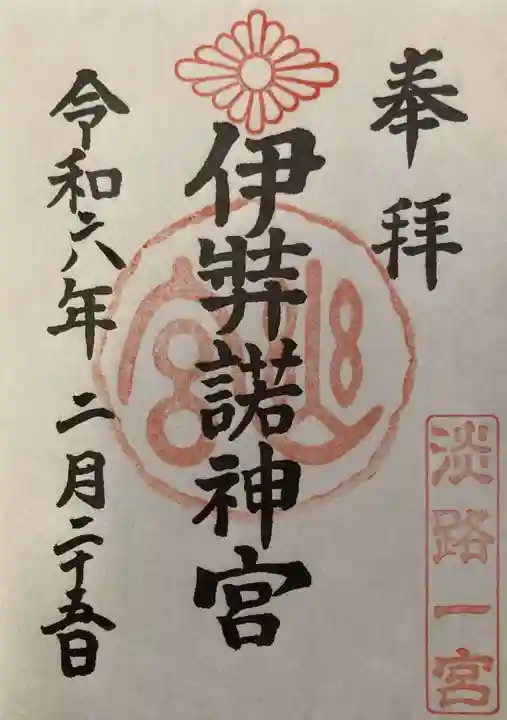 奉拝
淡路一宮
伊弉諾神宮
令和六年 二月二十五日